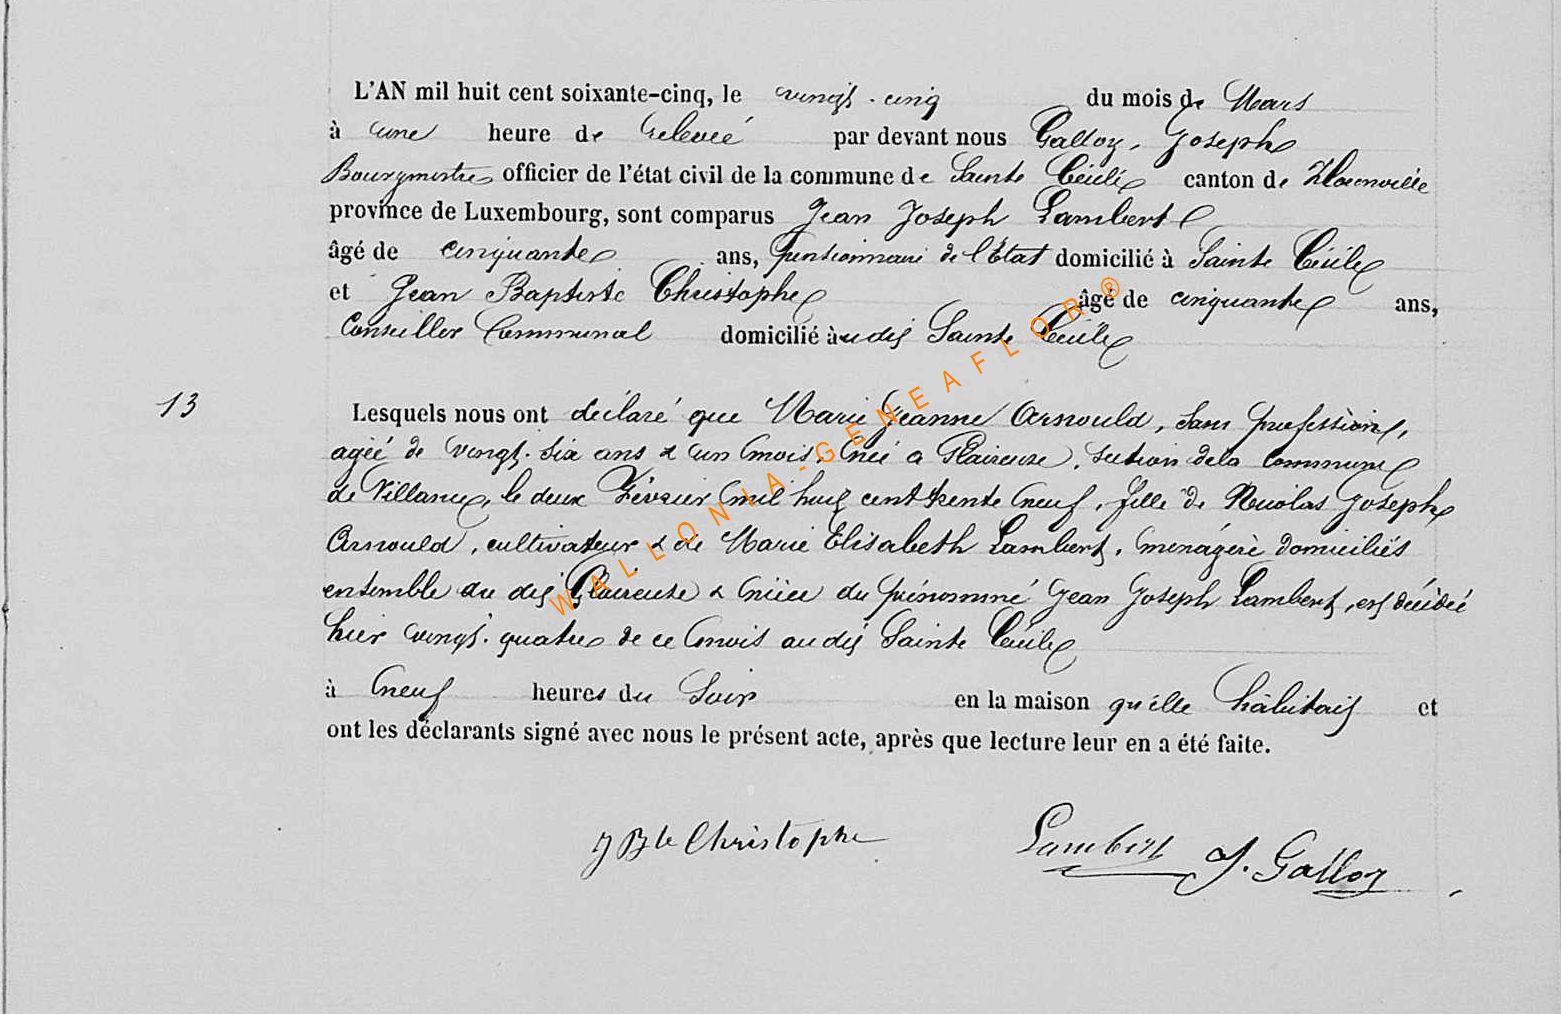 L'AN mil huit cent soixante-cinq, le vingt-cinq du mois de Mars
à une heure de relevée par devant nous Galloy, Joseph
Bourgmestre officier de l'état civil de la commune de Sainte Cécile canton de Florenville
province de Luxembourg, sont comparus Jean Joseph Lambert
âgé de cinquante ans, pensionnaire de l'État domicilié à Sainte Cécile
et Jean Baptiste Christophe âgé de cinquante ans,
Conseiller Communal domicilié à udit Sainte Cécile
13
Lesquels nous ont déclaré que Marie Jeanne Arnould, sans profession,
agée de vingt-six ans & un mois, née à Glaireuse, section de la commune
de Villance, le deux Février mil huit cent trente neuf, fille de Nicolas Joseph
Arnould, cultivateur & de Marie Elisabeth Lambert, ménagère domiciliés
ensemble au dit Glaireuse & nièce du prénommé Jean Joseph Lambert, est décédée
hier vingt-quatre de ce mois audit Sainte Cécile
à neuf heures du Soir en la maison qu'elle habitait et
ont les déclarants signé avec nous le présent acte, après que lecture leur en a été faite.
J Bte Christophe Lambert J. Galloy
WALLONIA-GENEAFLOR®